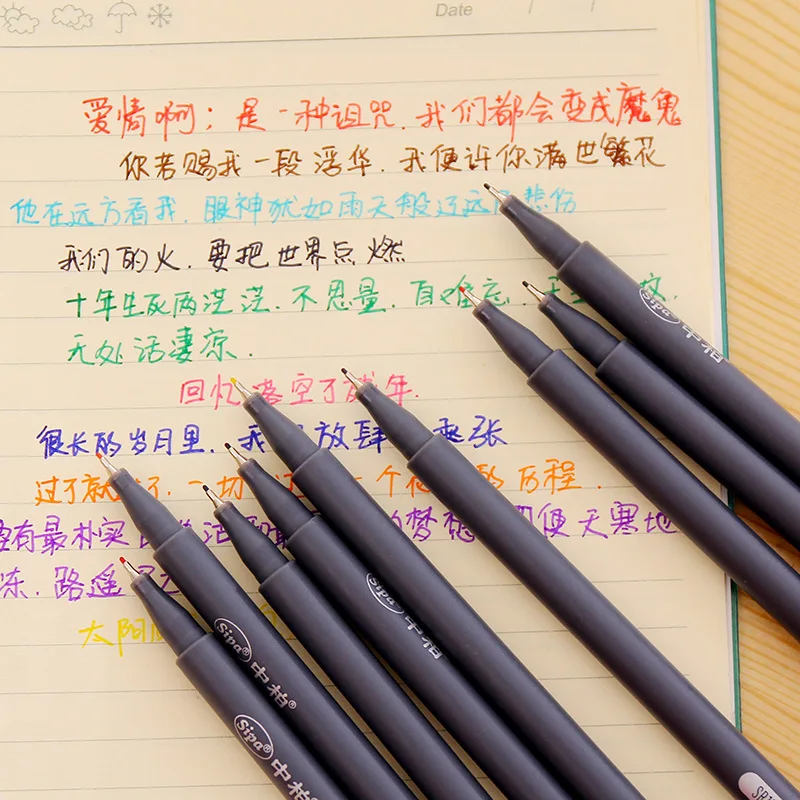 Date / /
爱情啊；是一种诅咒．我们都会变成魔鬼
你若赐我一段浮华．我便许你满世繁花
他在远方看我．眼神犹如雨天般辽远 悲伤
我们的火．要把世界点燃
十年生死两茫茫．不思量．自难忘．
无处话凄凉．
回忆落空了 年．
很长的岁月里．我 放肆 嚣张
过了就 了．一切 一个 的历程．
有最朴实 的梦想 即便天寒地
冻．路遥
太阳
Sipa® 中柏
Sipa® 中柏
Sipa 中柏®
Sipa® 中柏